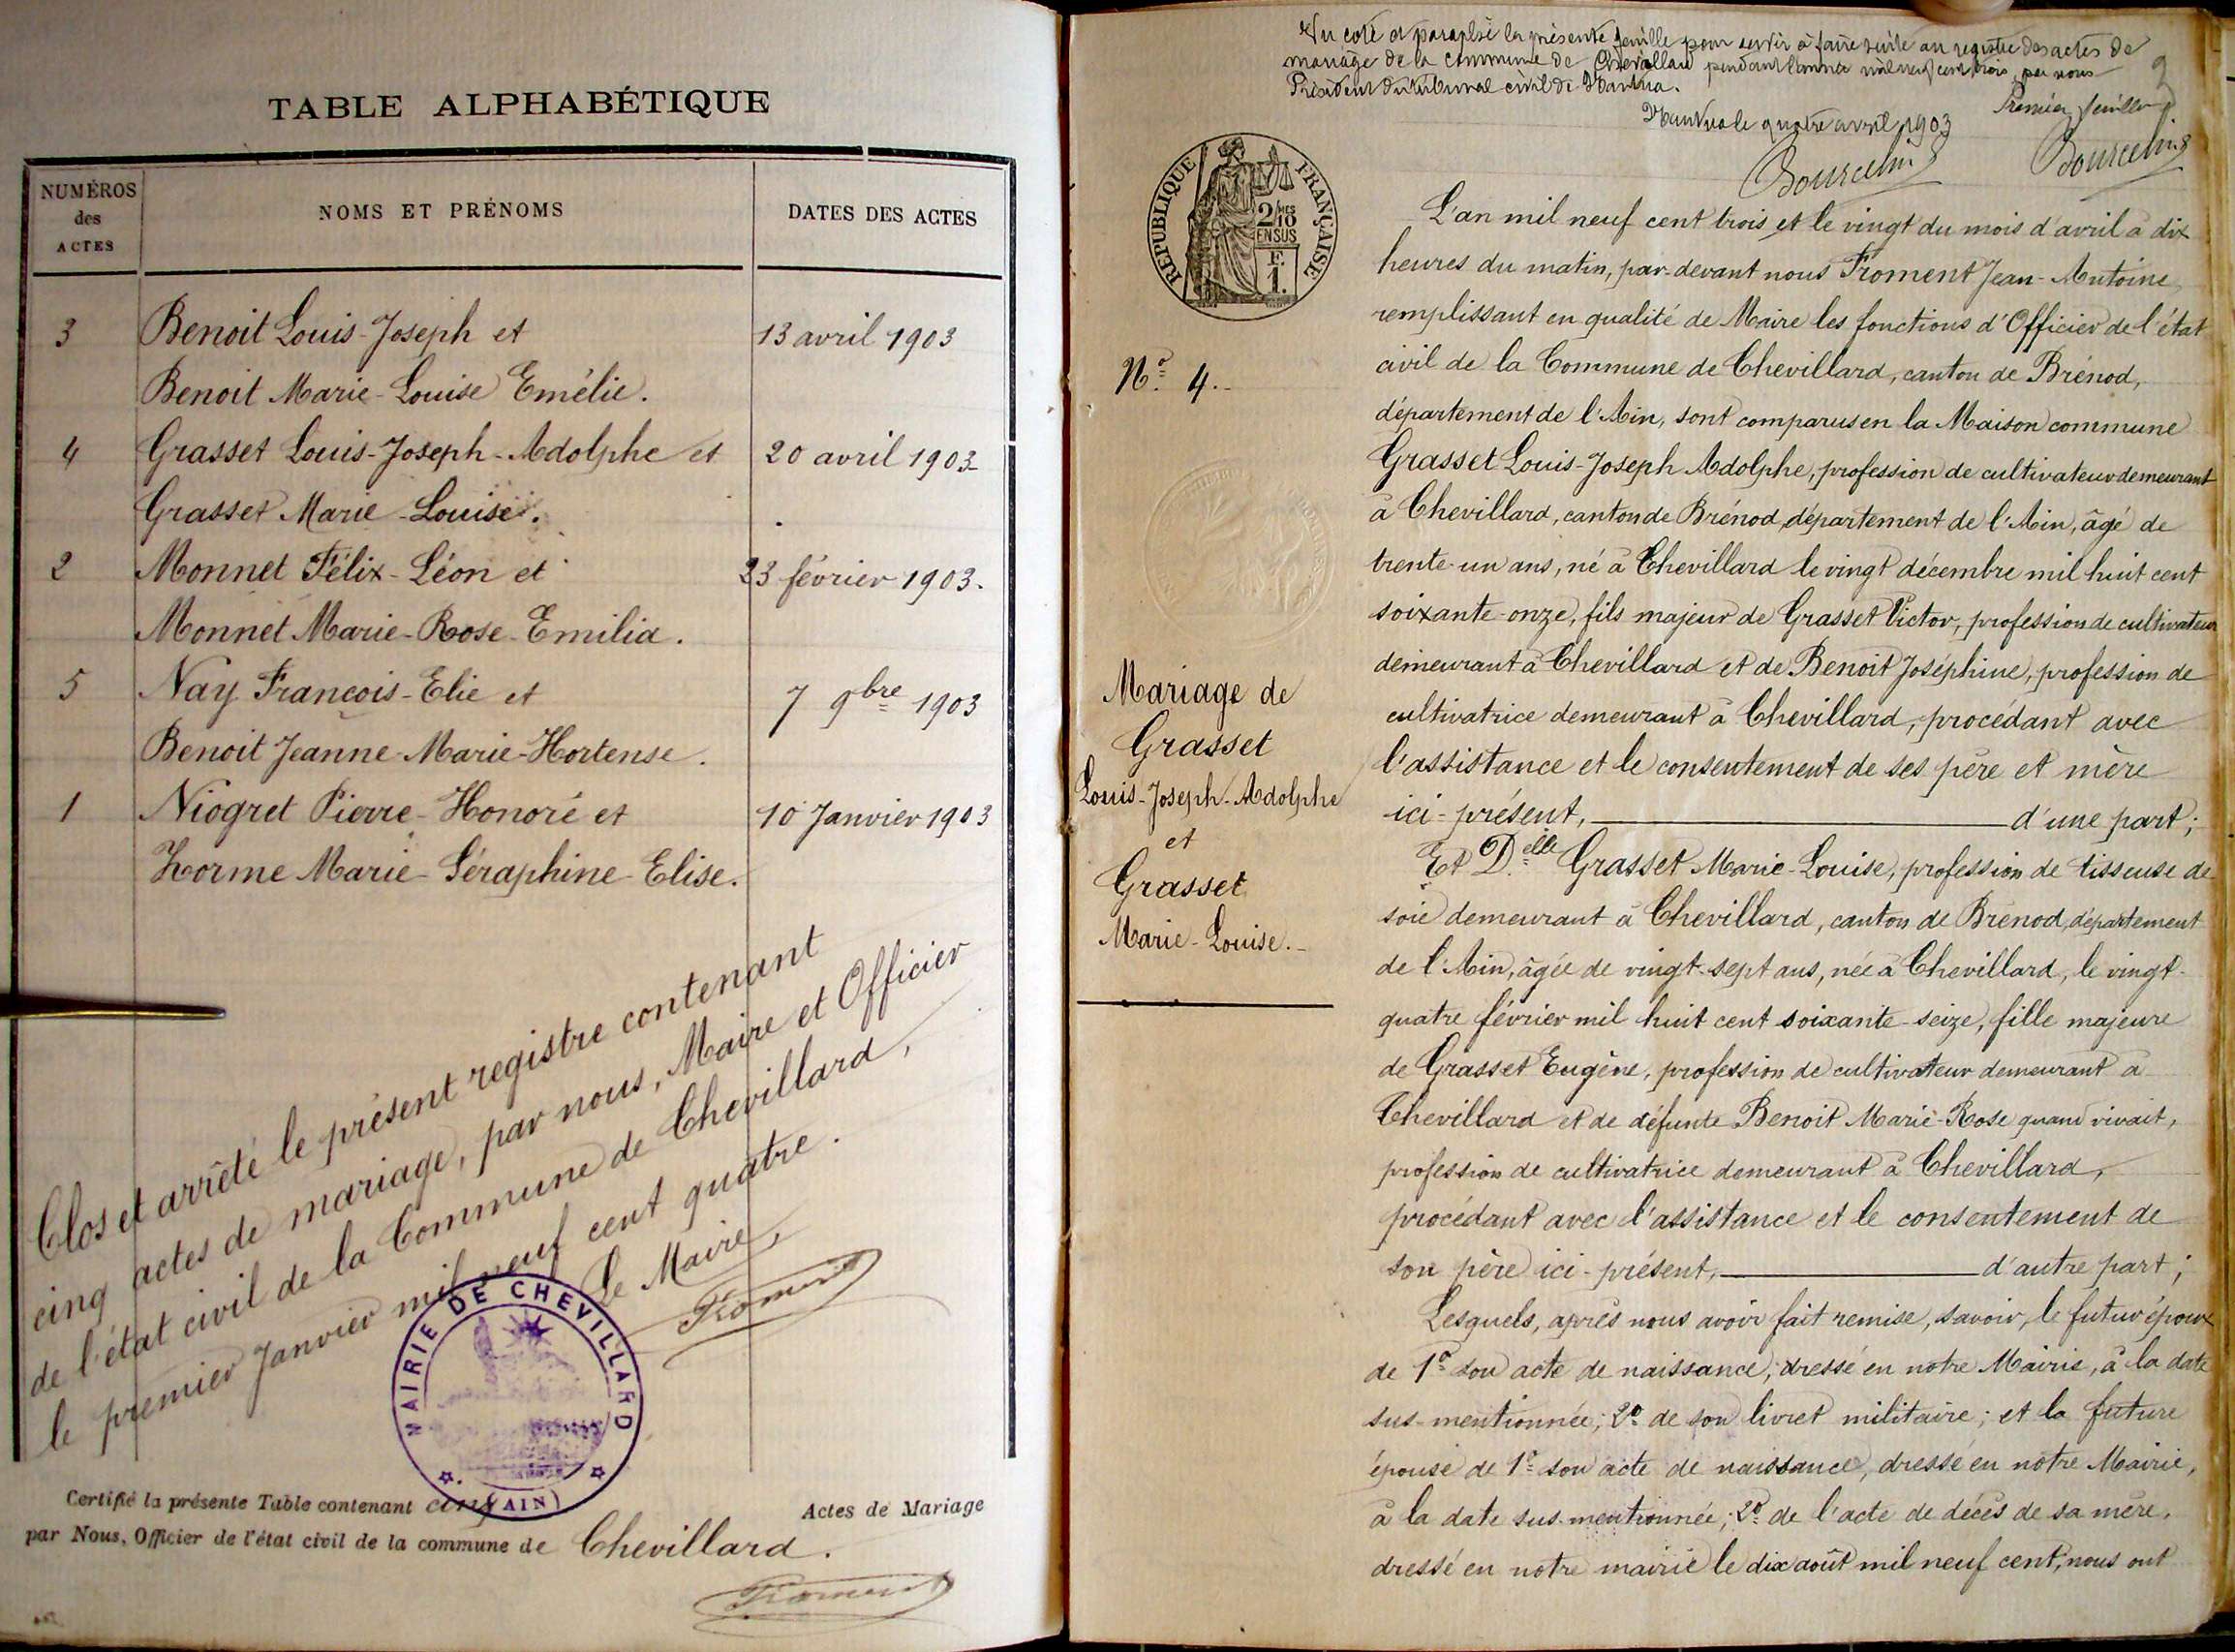 TABLE ALPHABÉTIQUE
NUMÉROS des ACTES
NOMS ET PRÉNOMS
DATES DES ACTES
3 Benoit Louis-Joseph et 13 avril 1903
Benoit Marie-Louise Emélie.
4 Grasset Louis-Joseph-Adolphe et 20 avril 1903
Grasset Marie-Louise.
2 Monnet Félix-Léon et 23 février 1903.
Monnet Marie-Rose-Emilia.
5 Nay François-Elie et 7 9bre 1903
Benoit Jeanne-Marie-Hortense.
1 Niogret Pierre-Honoré et 10 Janvier 1903
Lorme Marie-Séraphine-Elise.
Clos et arrêté le présent registre contenant
cinq actes de mariage, par nous, Maire et Officier
de l'état civil de la Commune de Chevillard,
le premier Janvier mil neuf cent quatre.
Le Maire,
Froment
MAIRIE DE CHEVILLARD
(AIN)
Certifié la présente Table contenant cinq Actes de Mariage
par Nous, Officier de l'état civil de la commune de Chevillard.
Froment
Vu coté et paraphé la présente feuille pour servir à faire suite au registre des actes de
mariage de la commune de Chevillard pendant l'année mil neuf cent trois, par nous
Président du tribunal civil de Nantua.
Nantua le quatre avril 1903
Premier feuillet
RÉPUBLIQUE FRANÇAISE
2/10MES
EN SUS
F.
1.
L'an mil neuf cent trois et le vingt du mois d'avril à dix
heures du matin, par-devant nous Froment Jean-Antoine
remplissant en qualité de Maire les fonctions d'Officier de l'état
civil de la Commune de Chevillard, canton de Brénod,
département de l'Ain, sont comparus en la Maison commune
Grasset Louis-Joseph Adolphe, profession de cultivateur demeurant
à Chevillard, canton de Brénod, département de l'Ain, âgé de
trente-un ans, né à Chevillard le vingt décembre mil huit cent
soixante-onze, fils majeur de Grasset Victor, profession de cultivateur
demeurant à Chevillard et de Benoit Joséphine, profession de
cultivatrice demeurant à Chevillard, procédant avec
l'assistance et le consentement de ses père et mère
ici-présent, d'une part;
Et D.elle Grasset Marie-Louise, profession de tisseuse de
soie demeurant à Chevillard, canton de Brénod, département
de l'Ain, âgée de vingt-sept ans, née à Chevillard, le vingt-
quatre février mil huit cent soixante-seize, fille majeure
de Grasset Eugène, profession de cultivateur demeurant à
Chevillard et de défunte Benoit Marie-Rose quand vivait,
profession de cultivatrice demeurant à Chevillard,
procédant avec l'assistance et le consentement de
son père ici-présent, d'autre part;
Lesquels, après nous avoir fait remise, savoir, le futur époux
de 1º son acte de naissance, dressé en notre Mairie, à la date
sus-mentionnée; 2º de son livret militaire; et la future
épouse de 1º son acte de naissance, dressé en notre Mairie,
à la date sus-mentionnée; 2º de l'acte de décès de sa mère,
dressé en notre mairie le dix août mil neuf cent, nous ont
Nº 4.
Mariage de
Grasset
Louis-Joseph-Adolphe
et
Grasset
Marie-Louise.